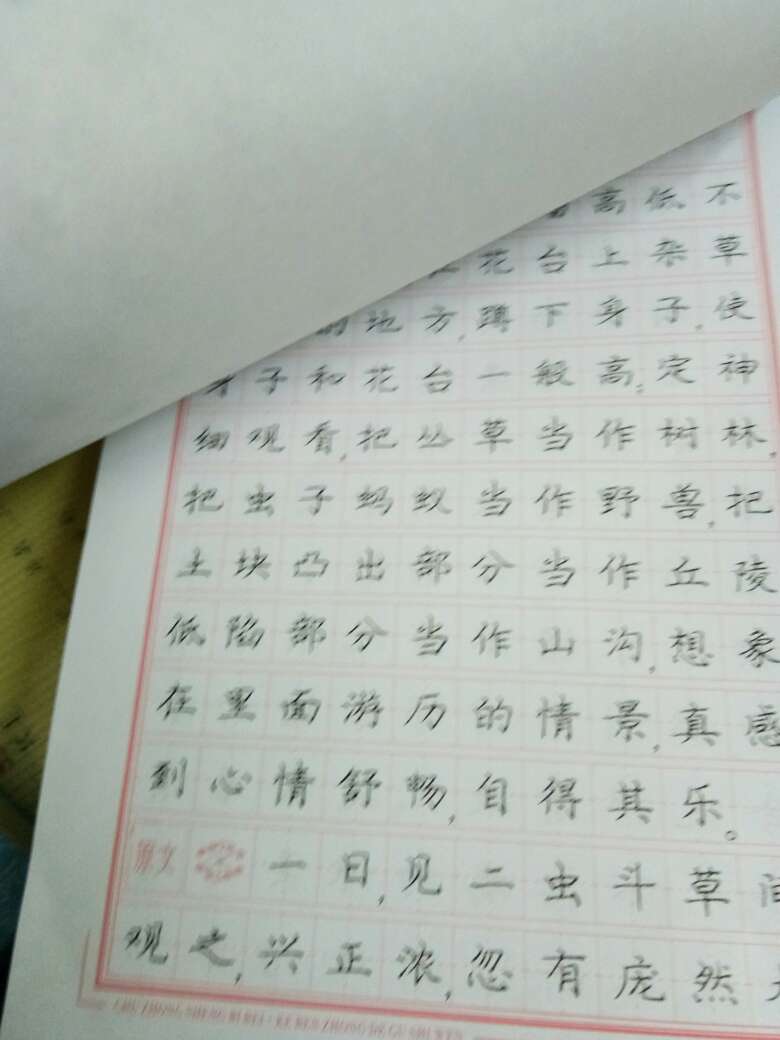 高低不
花台上杂草
的地方,蹲下身子,使
身子和花台一般高;定神
细观看,把丛草当作树林,
把虫子蚂蚁当作野兽,把
土块凸出部分当作丘陵
低陷部分当作山沟,想象
在里面游历的情景,真感
到心情舒畅,自得其乐。
原文 一日,见二虫斗草间
观之,兴正浓,忽有庞然
CHU ZHONG SHENG BI BEI · KE BEN ZHONG DE GU SHI WEN